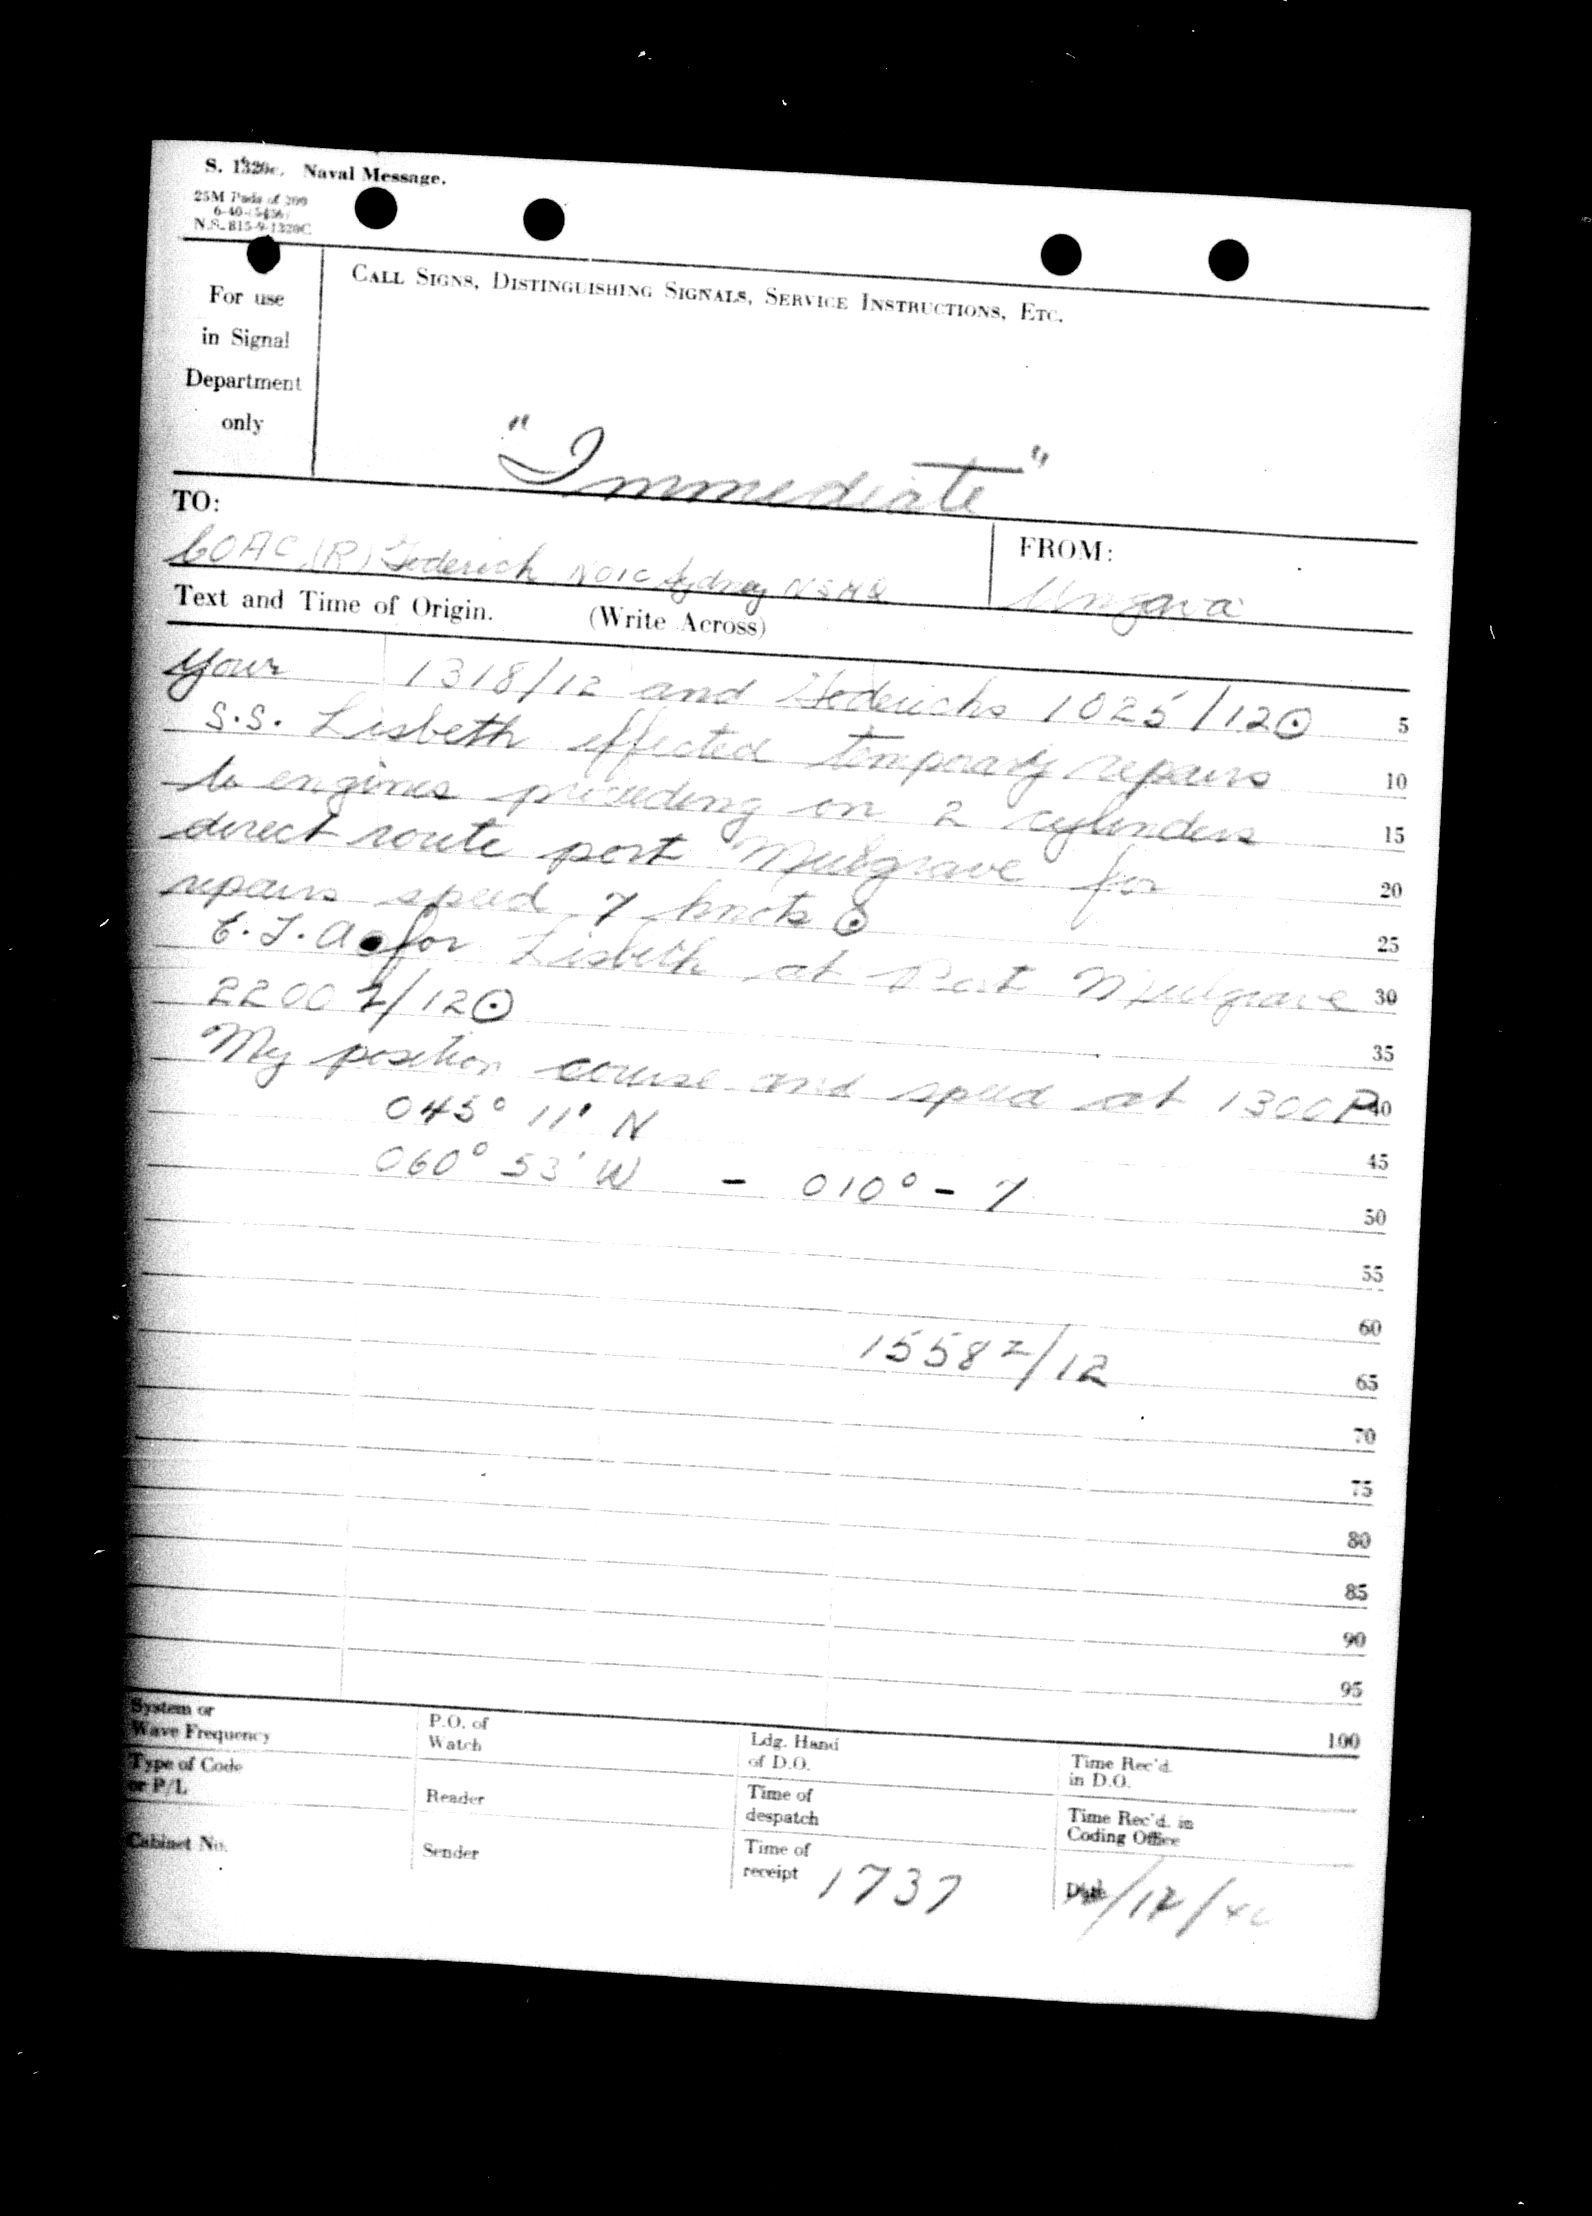 S. 1320c. Naval Message.
25M Pads of 200
6-40-(5456)
N.S. 815-9-1320C
For use
in Signal
Department
only
CALL SIGNS, DISTINGUISHING SIGNALS, SERVICE INSTRUCTIONS, ETC.
"Immediate"
TO:
COAC (R) Goderich NOIC Sydney NSHQ
FROM:
Ungava
Text and Time of Origin. (Write Across)
Your 1318/12 and Goderichs 1025/12⊙ 5
S.S. Lisbeth effected temporary repairs 10
to engines proceeding on 2 cylinders 15
direct route port Mulgrave for 20
repairs speed 7 knots ⊙ 25
E.T.A. for Lisbeth at Port Mulgrave 30
2200 Z/12⊙ 35
My position course and speed at 1300P 40
045° 11' N 45
060° 53' W - 010° - 7 50
55
60
1558 Z/12 65
70
75
80
85
90
95
100
System or
Wave Frequency
P.O. of
Watch
Ldg. Hand
of D.O.
Time Rec'd.
in D.O.
Type of Code
or P/L
Reader
Time of
despatch
Time Rec'd. in
Coding Office
Cabinet No.
Sender
Time of
receipt 1737
Date /12/40